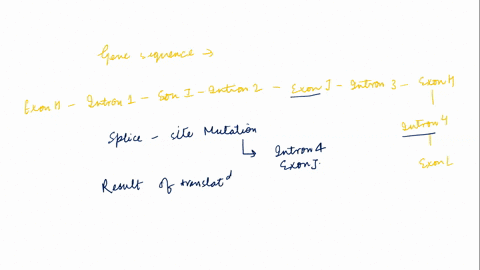 Gene sequence →
Exon H - Intron 1 - Exon I - Intron 2 - Exon J - Intron 3 - Exon H
Intron 4
Exon L
Splice - site Mutation
Intron 4
Exon J.
Result of translatd